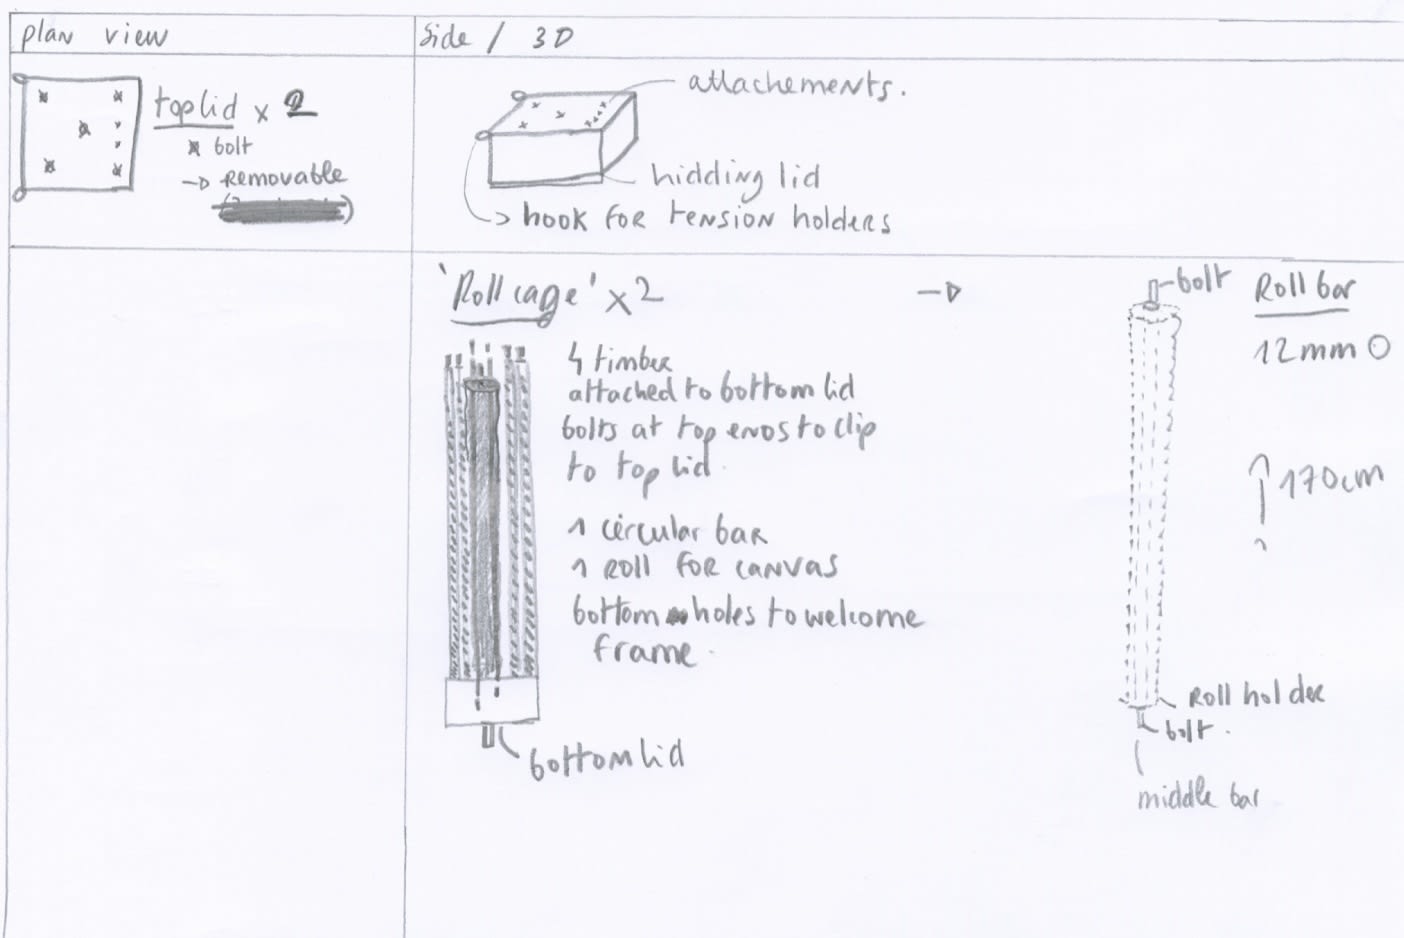 plan view
Side / 3D
top lid x 2
bolt
Removable
attachements.
hidding lid
hook for tension holders
'Roll cage' x 2
4 timber
attached to bottom lid
bolts at top ends to clip
to top lid.
1 circular bar
1 Roll for canvas
bottom holes to welcome
frame.
bottom lid
bolt
Roll bar
12mm O
170cm
Roll holder
bolt.
middle bar